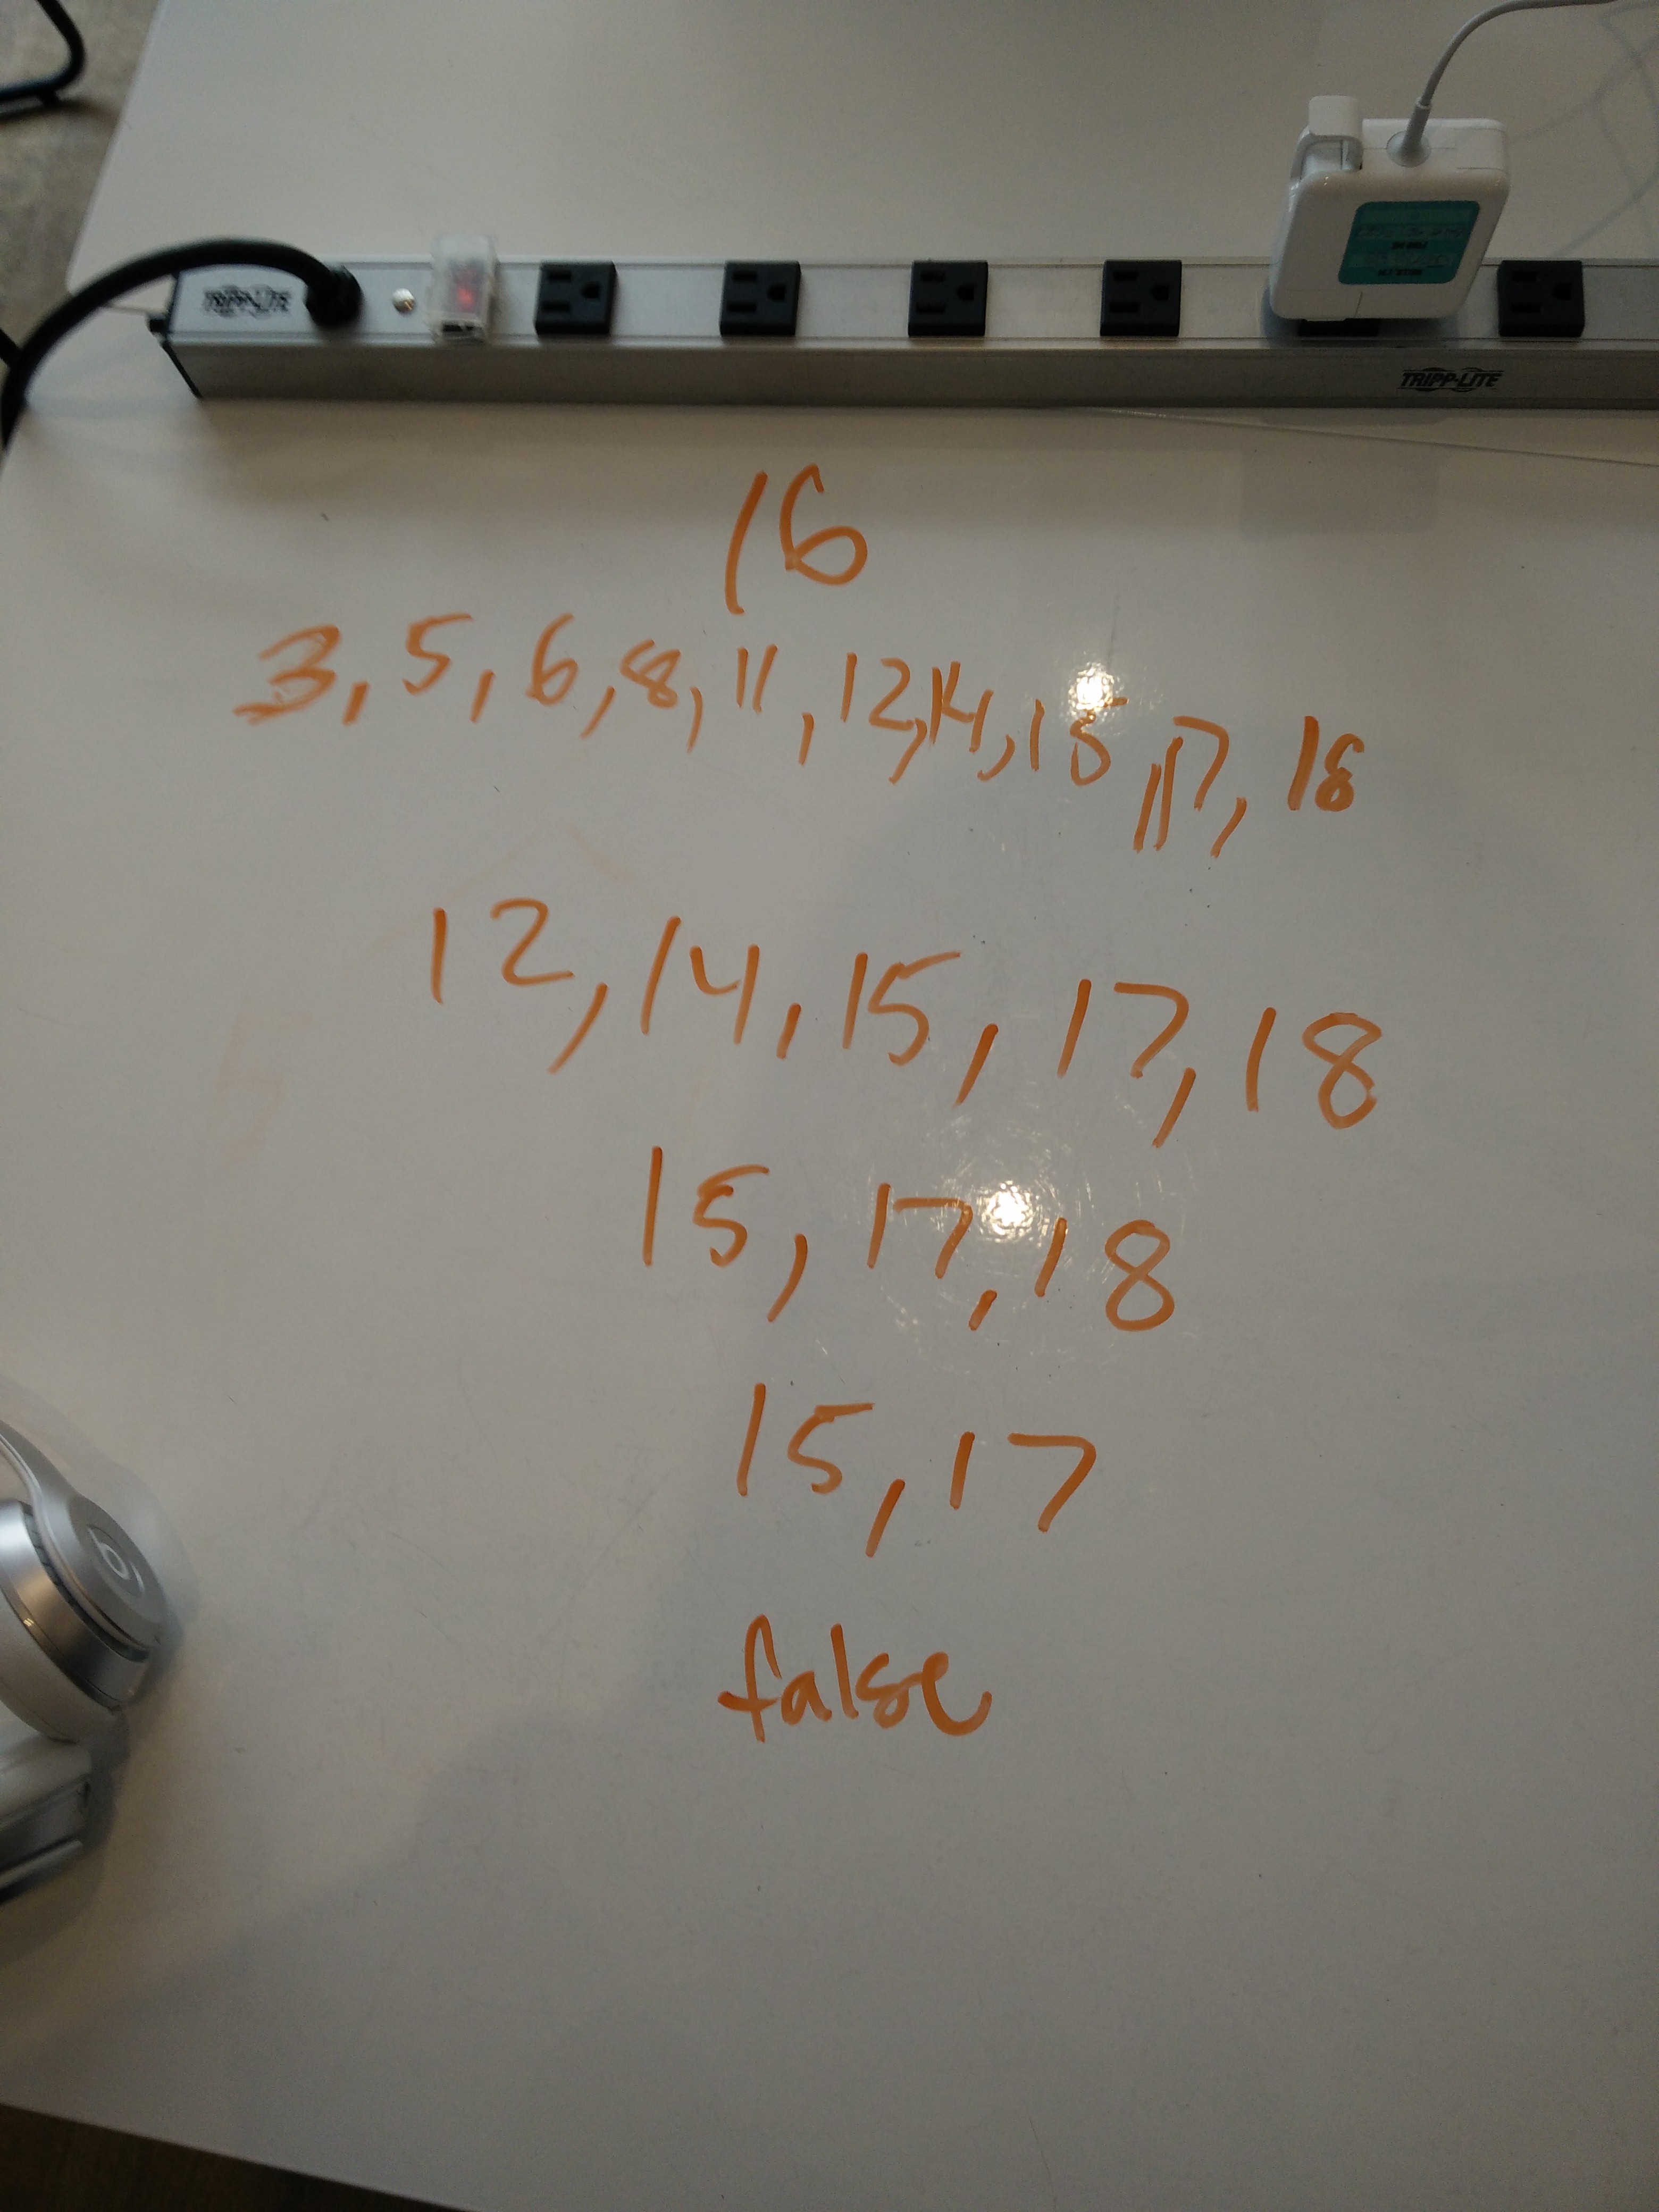 TRIPP·LITE
TRIPP·LITE
16
3, 5, 6, 8, 11, 12, 14, 15, 17, 18
12, 14, 15, 17, 18
15, 17, 18
15, 17
false